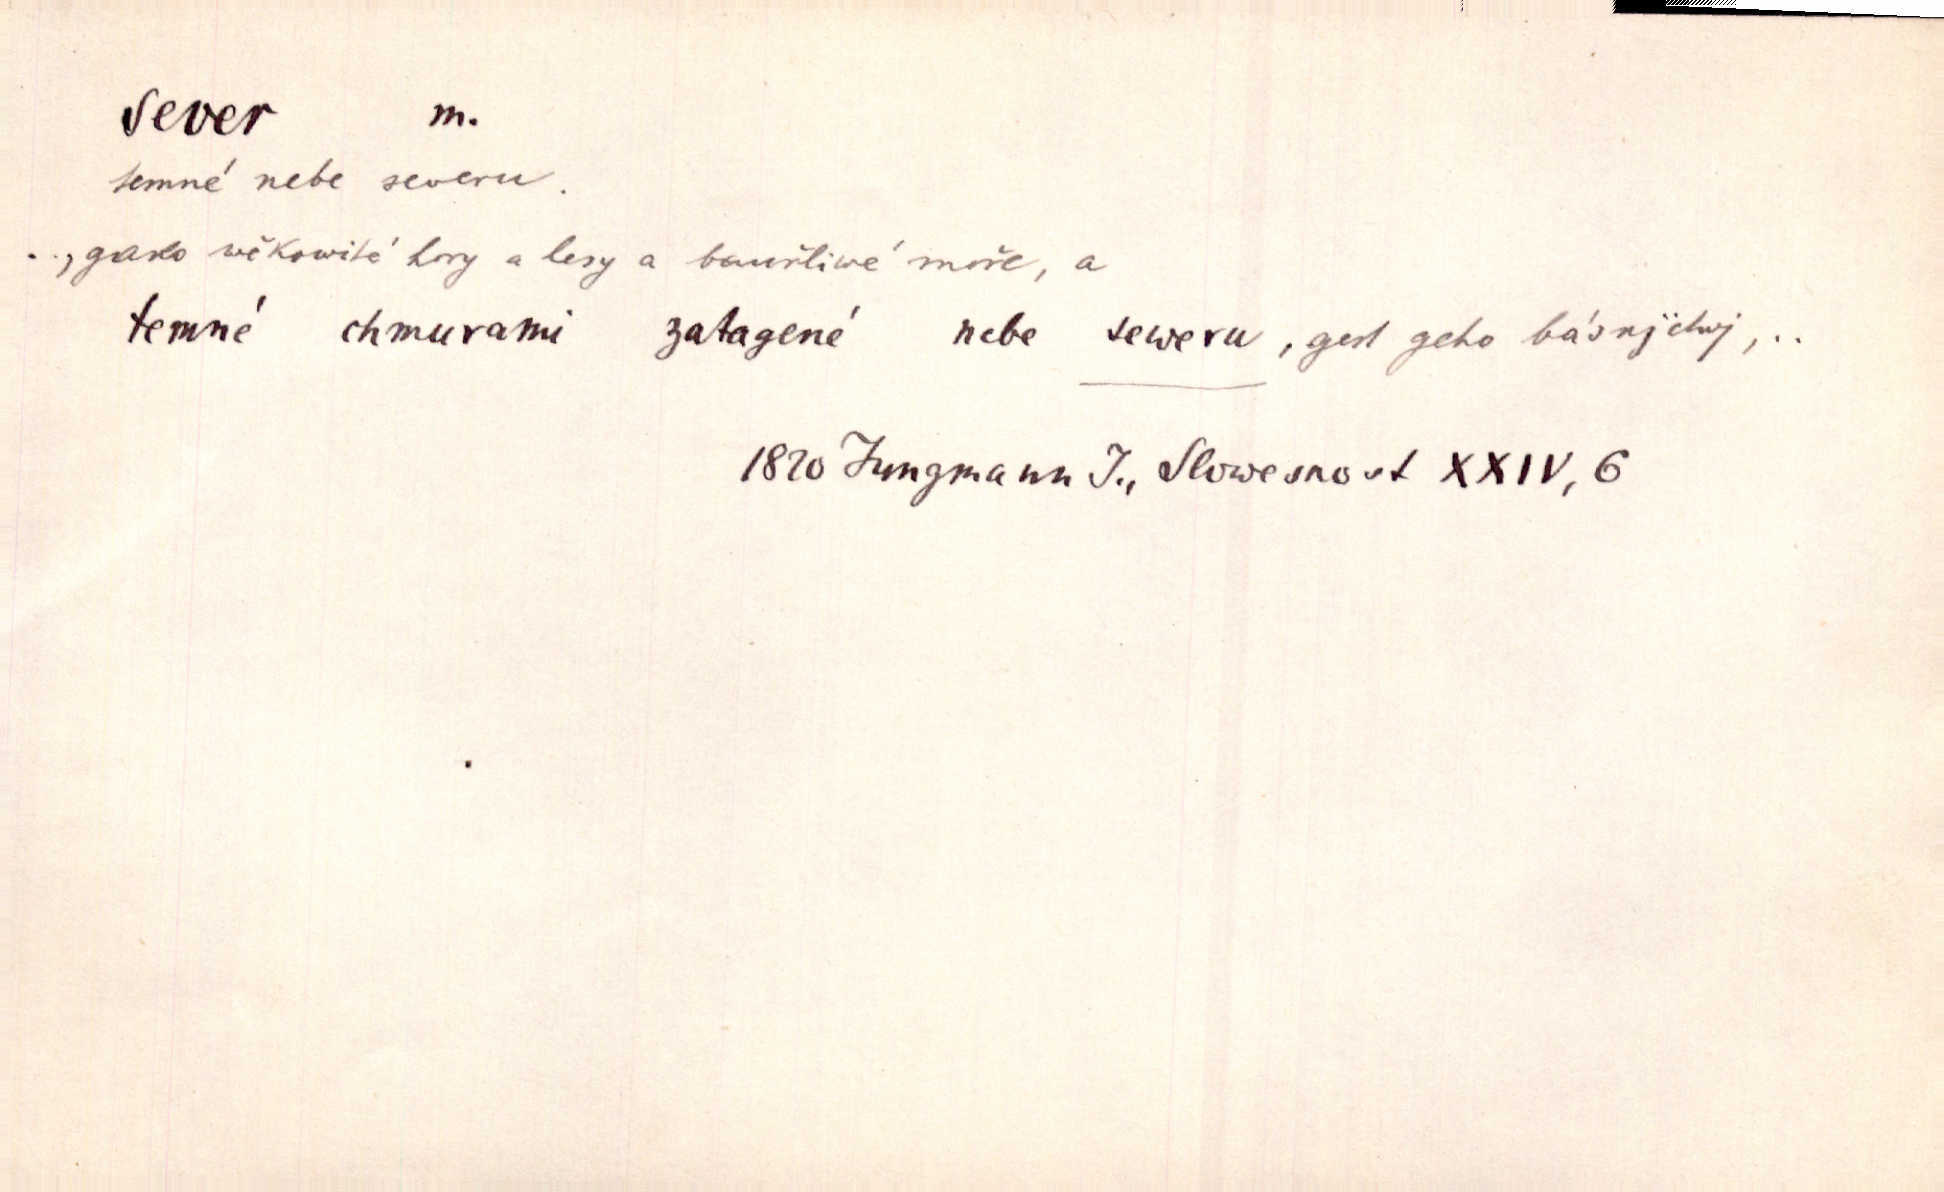 sever m.
temné nebe seweru.
.., gako wěkowité hory a lesy a bauřliwé moře, a
temné chmurami zatagené nebe seweru, gest geho básnjctwj, ..
1820 Jungmann J., Slowesnost XXIV, 6